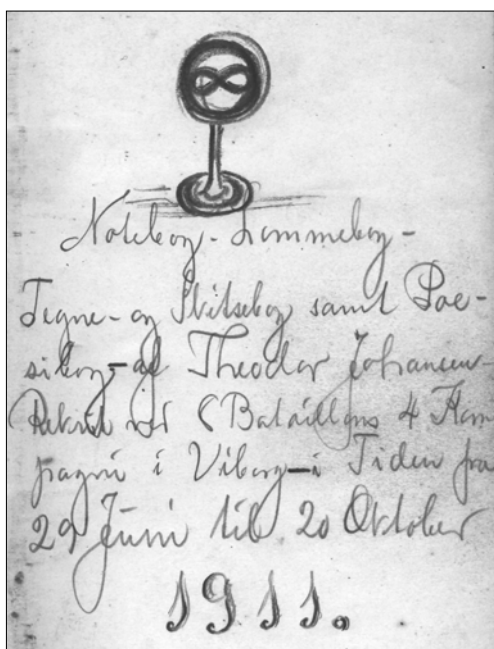 Notebog - Lommebog -
Tegne- og Skitsebog samt Poe-
sibog - af Theodor Johansen -
Rekrut ved 8 Bataillons 4 Kom
pagni i Viborg - i Tiden fra
29 Juni til 20 Oktober
1911.